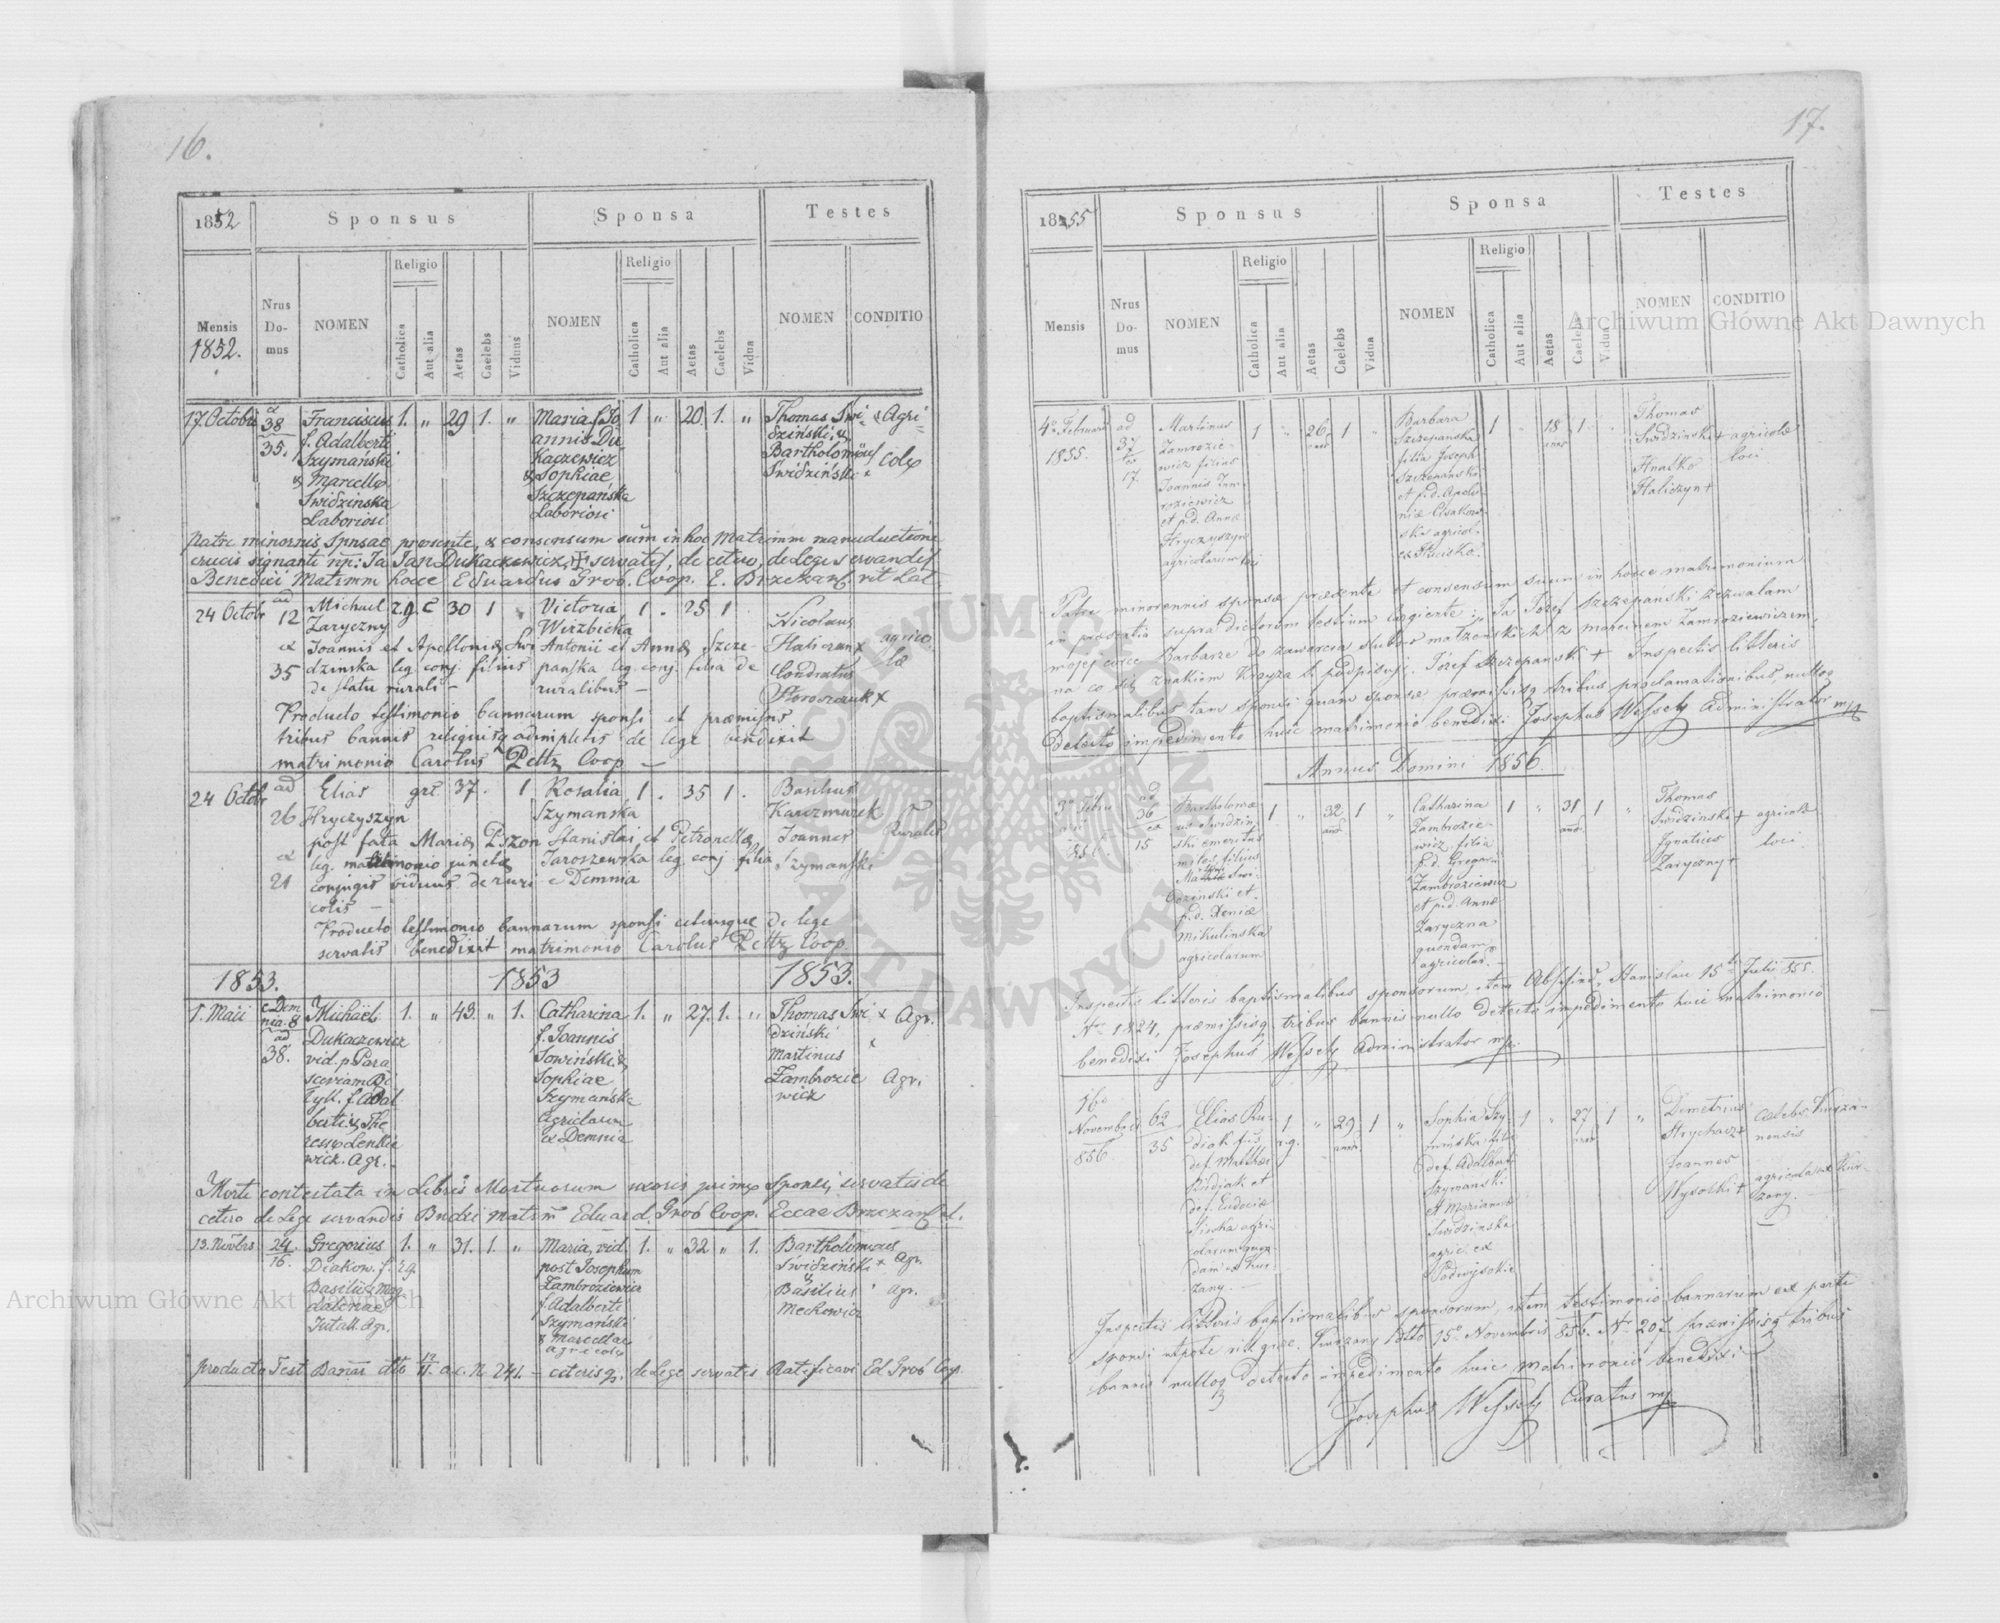 16.
1852
Sponsus
Sponsa
Testes
Mensis
1852.
Nrus
Do-
mus
NOMEN
Religio
Catholica
Aut alia
Aetas
Caelebs
Viduus
NOMEN
Religio
Catholica
Aut alia
Aetas
Caelebs
Vidua
NOMEN
CONDITIO
17. Octobris
38
35.
Franciscus
f. Adalberti
Szymański
& Marcellæ
Świdzinska
Laboriosi
1. " 29 1. "
Maria f. Jo
annis Du
Kaczewicz
& Sophiae
Szczepańska
Laboriosi
1 " 20. 1. "
Thomas Świ
dziński, &
Bartholomäus
Świdziński
Agri
colæ
Patre minornis Spnsae præsente, & consensum suum in hoc Matrimm manuductione
crucis signanti nn: Ja Jan Dukaczewicz + servatis, de cetero, de Lege servandis
Benedici Matrimm hocce Eduardus Grob. Coop. E. Brzezan. rit Lat.
24 Octobr
ad
12
ex
35
Michael
Zaryczny
Joannis et Apolloniæ Świ
dzinska leg. conj. filius
de statu rurali -
r. g. c 30 1
Victoria
Wirzbicka
Antonii et Annæ Szcze-
panska leg. conj. filia de
ruralibus -
1 . 25 1
Nicolaus
Haliczan x
Condratus
Storoszczuk x
agrico
læ
Producto testimonio bannorum sponsi et præmissis
tribus bannis reliquisq adimpletis de lege bendixit
matrimonio Carolus Peltz Coop -
24 Octobr
ad
26
ex
21
Elias
Hryczyszyn
post fata Mariæ Pszon
leg. matrimonio junctæ
conjugis viduus de ruri
colis -
grc. 37 . 1
Rosalia
Szymanska
Stanislai, et Petronellæ
Jaroszewska leg. conj. filia
e Demnia
1 . 35 1 .
Basilius
Kaczmarek
Joannes
Szymanski
Rurales
Producto testimonio bannorum sponsi ceterisque de lege
servatis benedixit matrimonio Carolus Peltz Coop.
1853. 1853 1853.
1. Maii
e Dem
nia 8
ad
38.
Michaël
Dukaczewicz
vid. p. Para
sceviam
Tyll. f. Adal
berti & The
resiæ Lenkie
wicz. Agr.
1. " 43. " 1.
Catharina
f. Joannis
Sowiński &
Sophiae
Szymańska
Agricolarum
ex Demnia
1. " 27. 1. "
Thomas Świ
dziński
Martinus
Zambrozie
wicz
x Agr.
x
Agr.
Morte contestata in Libris Mortuorum uxoris primæ Sponsi, servatis de
cetero de Lege servandis Bndxi Matrm Eduard. Grob Coop. Eccae Brzezan. r.l.
13. Novbris
24
16.
Gregorius
Diakow. f.
Basilii & Mag
dalenae
Jutall. Agr.
1. " 31. 1. "
r.g.
Maria, vid.
post Josephum
Zambroziewicz
f. Adalberti
Szymański
& Marcellae
agricolæ
1. " 32 " 1.
Bartholomaeus
Świdziński x
&
Basilius
Meckewicz
Agr.
Agr.
producto Test Bannar dtto a.c. N 241. = ceterisq. de Lege servatis Ratificavi Ed Grob Coop.
17.
1855
Sponsus
Sponsa
Testes
Mensis
Nrus
Do-
mus
NOMEN
Religio
Catholica
Aut alia
Aetas
Caelebs
Vidua
NOMEN
Religio
Catholica
Aut alia
Aetas
Caelebs
Vidua
NOMEN
CONDITIO
4a Februarii
1855.
ad
37
ex
17.
Martinus
Zamrozie-
wicz filius
Joannis Zam-
roziewicz
et p.d. Annæ
Hryczyszyn
agricolarum loci
1 " 26 1 "
Barbara
Szczepanska
filia Joseph
Szczepanski
et p.d. Apolo-
niæ
agricol.
1 " 18 1 "
Thomas
Swidzinski +
Hnatko
Haliczyn +
agricolæ
loci
Patre minorennis sponsæ præsente et consensum suum in hocce matrimonium
in præsentia supra dictorum testium largiente: Ja Józef Szczepanski zezwalam
mojej córce Barbarze do zawarcia ślubów małżenskich z Marcinem Zamroziewiczem,
na co się znakiem Krzyża S. podpisuję. Józef Szczepanski + Inspectis litteris
baptismalibus tam sponsi quam sponsæ, præmissisq tribus proclamationibus, nulloq
detecto impedimento huic matrimonio benedixi Josephus Wessely Administrator mp
Annus Domini 1856.
3a Febru
arii
856.
ad
36
ex
15
Bartholomæ
us Swidzin
ski emeritus
miles, filius
Swi-
dzinski et
p.d. Xeniæ
Mikulinska
agricolarum
1 " 32 1 "
Catharina
Zambrozie-
wicz, filia
p.d. Gregor
Zambroziewicz
et p.d. Annæ
Zaryczna
quondam
agricolar.
1 " 31 1 "
Thomas
Swidzinski +
Ignatius
Zaryczny +
agricolæ
loci.
Inspectis litteris baptismalibus sponsorum, item Abschied, Stanislau 15 Julii 855.
Nr. 1824, præmissisq tribus bannis nullo detecto impedimento huic matrimonio
benedixi Josephus Wessely Administrator mp.
16a
Novembris
856
62
35
Elias Ru-
diak fil.
def. Matthæi
Rudjak et
def. Eudociæ
agri-
colarum quon
dam ex Kur-
zany.
1. " 29 1 "
r.g.
Sophia Szy-
mańska filia
def. Adalberti
Szymanski
et Mariannæ
Swidzinska
agric. ex
Podwysokie
1 " 27 1 "
Dimetrius
Hrycharz +
Joannes
Wysocki +
celebs Kurza-
nensis
agricola ex Kur-
zany.
Inspectis litteris baptismalibus sponsorum, item testimonio bannorum ex parte
sponsi utpote rit. græc. Kurzany ddto 15a Novembris 856. Nr. 207. præmissisq tribus
bannis nulloq detecto impedimento huic matrimonio benedixi
Josephus Wessely Curatus mp
Archiwum Główne Akt Dawnych
Archiwum Główne Akt Dawnych
ARCHIWUM GŁÓWNE
AKT DAWNYCH